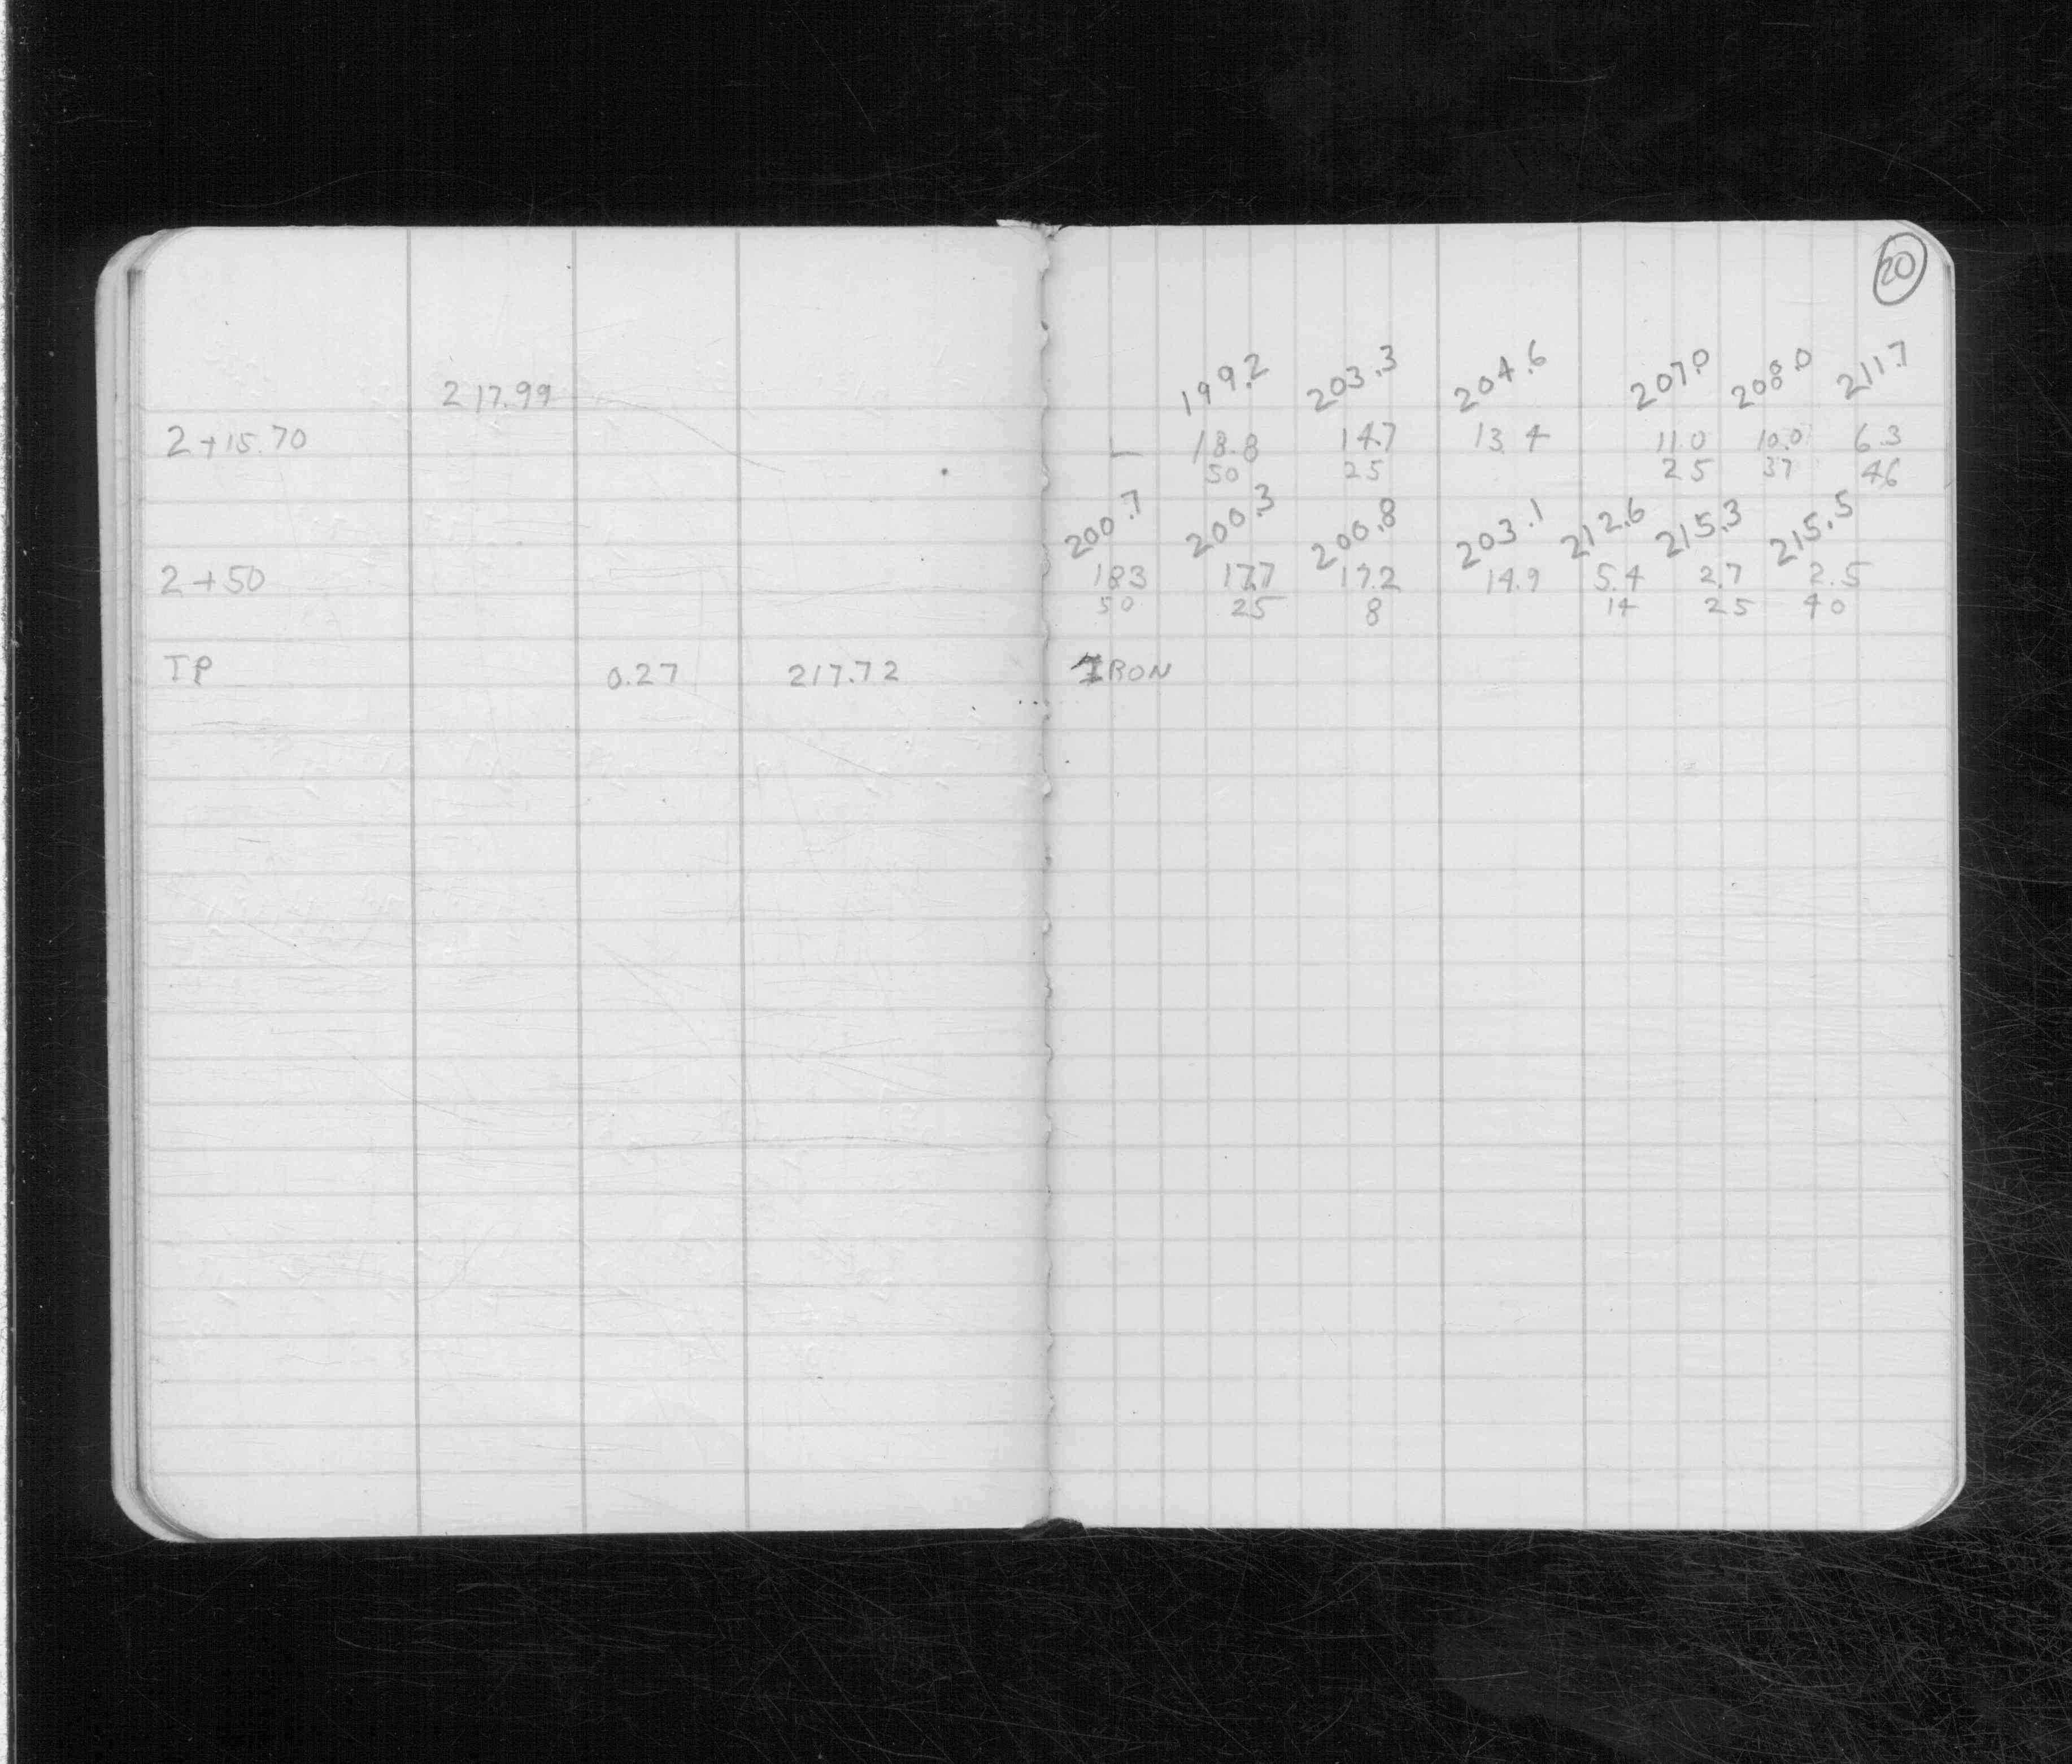 20
217.99 199.2 203.3 204.6 207.0 208.0 211.7
2+15.70 L 18.8 14.7 13.4 11.0 10.0 6.3
50 25 25 37 46
200.7 200.3 200.8 203.1 212.6 215.3 215.5
2+50 18.3 17.7 17.2 14.9 5.4 2.7 2.5
50 25 8 14 25 40
TP 0.27 217.72 IRON